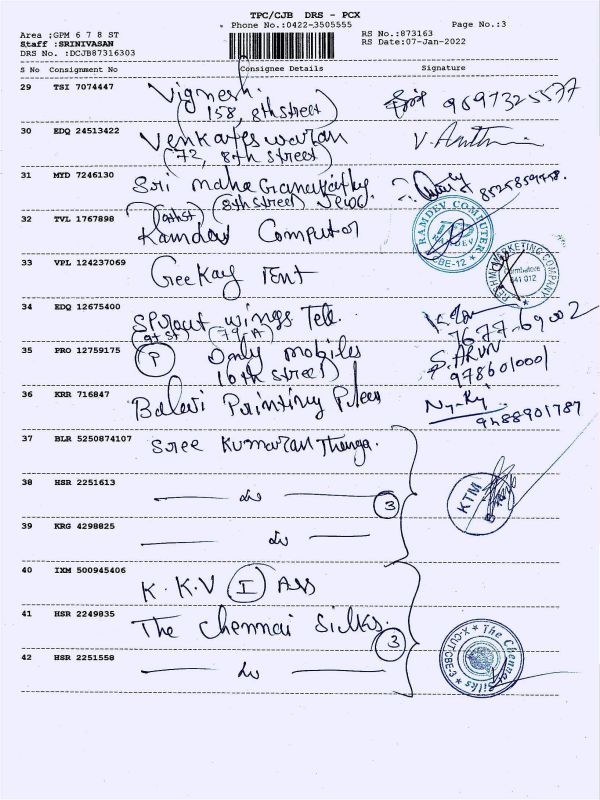 TPC/CJB DRS - PCX
Phone No.:0422-3505555
Page No.:3
Area :GPM 6 7 8 ST
RS No.:873163
Staff :SRINIVASAN
RS Date:07-Jan-2022
DRS No. :DCJB87316303
S No Consignment No Consignee Details Signature
29 TSI 7074447 Vignesh.
(158, 8th street)
30 EDQ 24513422 Venkateswaran
(72, 8th street)
31 MYD 7246130 Sri maha Ganapathy
(8th street)
32 TVL 1767898 Ramdev Computer
RAMDEV COMPUTER
CBE-12
33 VPL 124237069 Geekay Tent
MARKETING COMPANY
641 012
34 EDQ 12675400 Sprout wings Tele.
(9th st) (79/A)
35 PRO 12759175 (P) Only mobiles
(10th street)
S. ARUN
9786010001
36 KRR 716847 Balavi Printing
9488901787
37 BLR 5250874107 Sree Kumaran Thanga.
38 HSR 2251613
3
KTM
39 KRG 4298825
40 IXM 500945406 K.K.V (I) Ass
41 HSR 2249835 The Chennai Silks.
3
The Chennai Silks
42 HSR 2251558